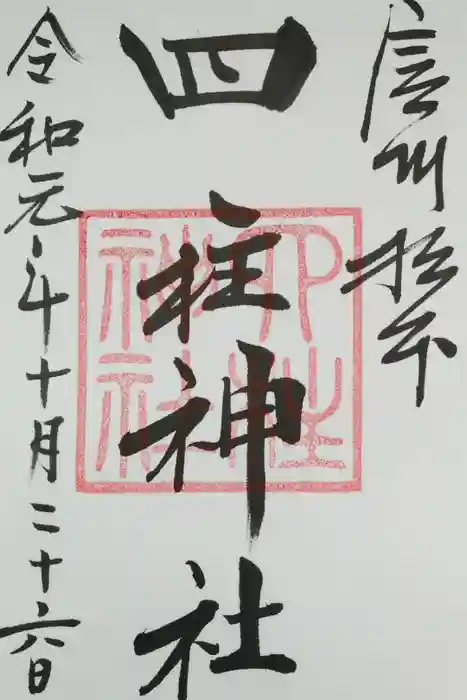 信州松本
四柱神社
四柱神社
令和元年十月二十六日